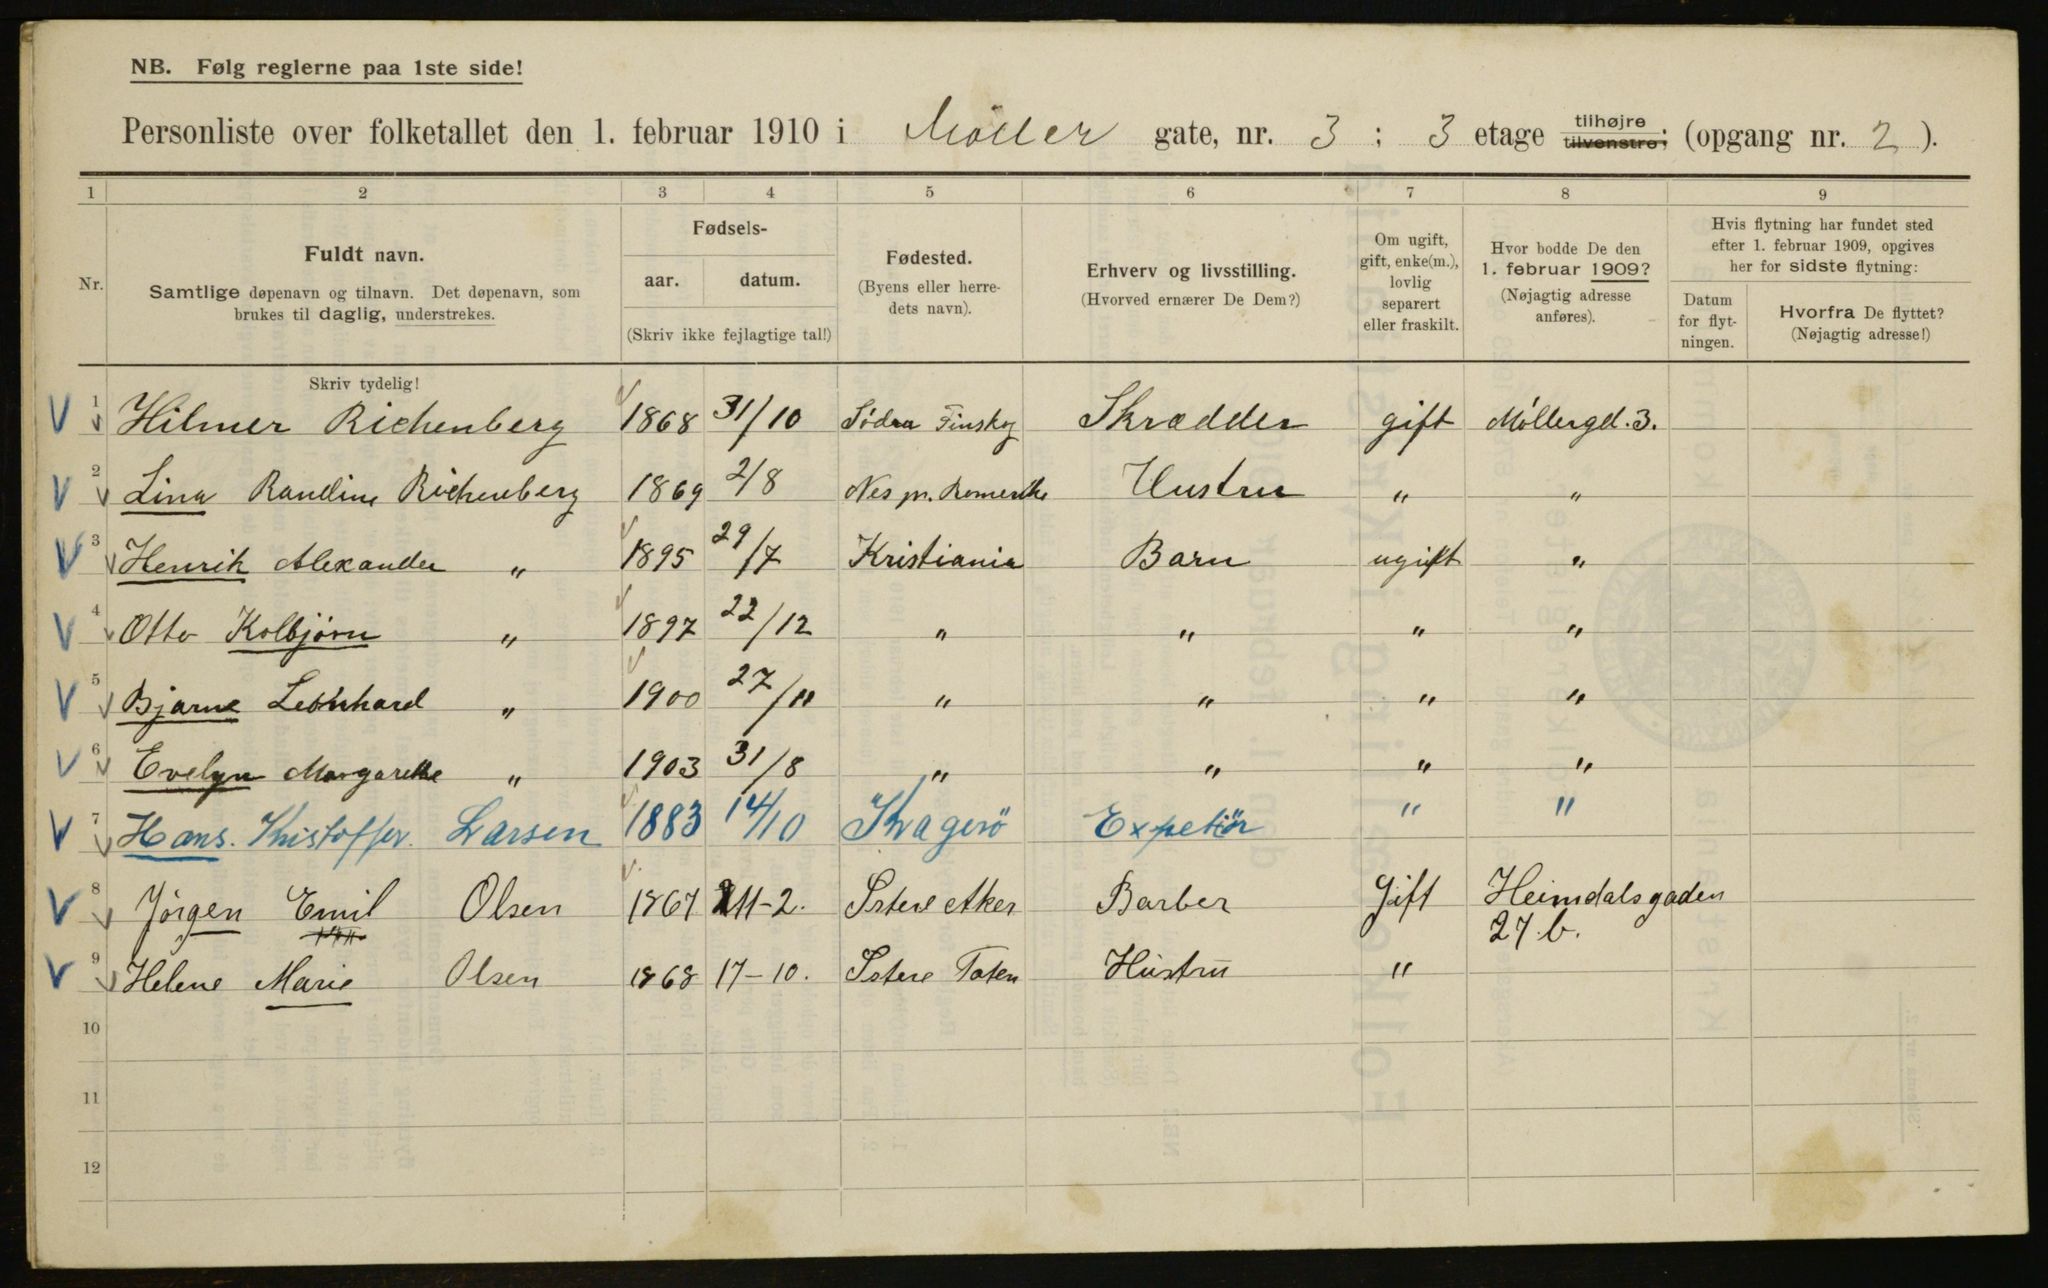 NB. Følg reglerne paa 1ste side!
Personliste over folketallet den 1. februar 1910 i Möller gate, nr. 3 : 3 etage tilhøjre tilvenstre; (opgang nr. 2 ).
1 2 3 4 5 6 7 8 9
Nr.
Fuldt navn.
Samtlige døpenavn og tilnavn. Det døpenavn, som
brukes til daglig, understrekes.
Skriv tydelig!
Fødsels-
aar. datum.
(Skriv ikke fejlagtige tal!)
Fødested.
(Byens eller herre-
dets navn).
Erhverv og livsstilling.
(Hvorved ernærer De Dem?)
Om ugift,
gift, enke(m.),
lovlig
separert
eller fraskilt.
Hvor bodde De den
1. februar 1909?
(Nøjagtig adresse
anføres).
Hvis flytning har fundet sted
efter 1. februar 1909, opgives
her for sidste flytning:
Datum
for flyt-
ningen.
Hvorfra De flyttet?
(Nøjagtig adresse!)
1 Hilmer Richenberg 1868 31/10 Södra Finskog Skrædder gift Möllergd. 3.
2 Lina Randine Richenberg 1869 2/8 Nes p. Romerike Hustru " "
3 Henrik Alexander " 1895 29/7 Kristiania Barn ugift "
4 Otto Kolbjørn " 1897 22/12 " " " "
5 Bjarne Leonhard " 1900 27/11 " " " "
6 Evelyn Margarethe " 1903 31/8 " " " "
7 Hans. Kristoffer. Larsen 1883 14/10 Kragerö Expetiör " "
8 Jörgen Emil Olsen 1867 11-2. Östere Aker Barber Gift Heimdalsgaden
27 b.
9 Helene Marie Olsen 1868 17-10. Östere Toten Hustru "
10
11
12